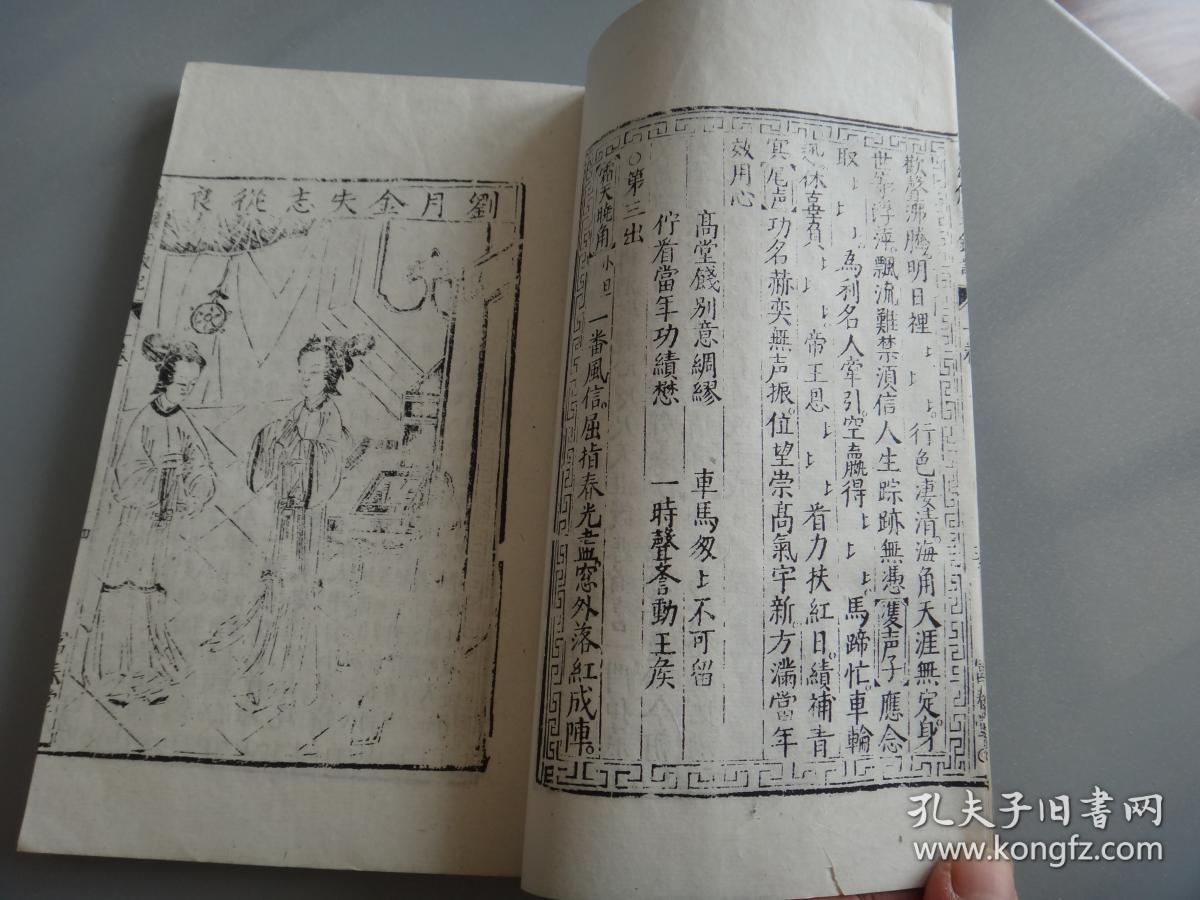 歡聲沸騰明日裡﹅﹅行色凄涓海角天涯無定身
世每浮萍飄流難禁湏信人生踪跡無憑【雙声子】應念
取﹅﹅為利名人牽引空嬴得﹅﹅馬蹄忙車輪
休辜負﹅﹅帝王恩﹅﹅着力扶紅日績補青
【尾声】功名赫奕無声振位望崇高氣宇新方滿當年
效用心
高堂餞別意綢繆 車馬匆﹅不可留
佇看當年功績懋 一時聲誉動王矦
○第三出
【霜天曉角】小旦 一番風信屈指春光盡窓外落紅成陣
劉月金失志從良
孔夫子旧书网
www.kongfz.com